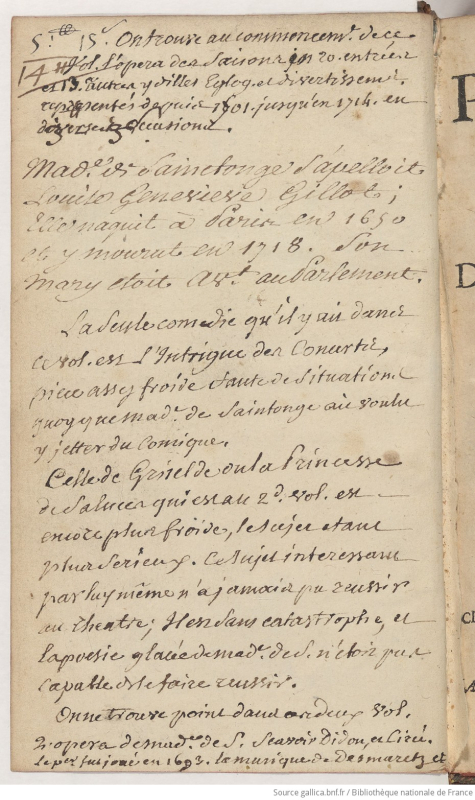 5.tt 15s. On trouve au commencemt. de ce
14tt Vol. l'opera des Saisons in 20. entrées
et 13. autres ydilles Eglog. et divertissem.
representés depuis 1701. jusqu'en 1714. en
diverses occasions.
Made. de Sainctonge s'apelloit
Louise Genevieve Gillot;
Elle naquit à Paris en 1650
et y mourut en 1718. Son
mary etoit Avt. au Parlement.
La seule comedie qu'il y ait dans
ce vol. est l'Intrigue des Concerts,
piece assez froide faute de situations
quoy que made. de Saintonge ait voulu
y jetter du comique.
Celle de Griselde ou la Princesse
de Saluces qui est au 2d. vol. est
encore plus froide, le sujet etant
plus serieux. Ce sujet interessant
par luy même n'a jamais pu reussir
au theatre; Il est sans catastrophe, et
la poesie glacée de made. de S. n'etoit pas
capable de le faire reussir.
On ne trouve point dans ces deux vol.
2 opera de made. de S. Scavoir Didon, et Circé.
le per fut joué en 1693. la musique de Desmaretz et
P
D
Source gallica.bnf.fr / Bibliothèque nationale de France